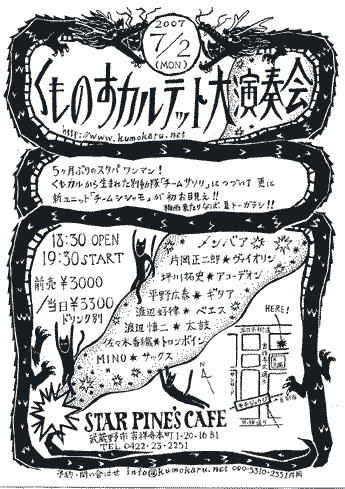 2007
7/2
(MON)
くものすカルテット大演奏会
http://www.kumokaru.net
5ヶ月ぶりのスタパワンマン!
くもカルから生まれた別動隊「チームサソリ」につづいて更に
新ユニット「チームシシャモ」が初お目見え!!
梅雨来たりなば、夏トーガラシ!!
18:30 OPEN
19:30 START
前売 ¥3000
当日 ¥3300
ドリンク別
メンバア
片岡正二郎★ヴァイオリン
坪川拓史★アコーデオン
平野広泰★ギタア
渡辺好博★ベエス
渡辺慎二★太鼓
佐々木香織★トロンボイン
MINO★サックス
HERE!
N
STAR PINE'S CAFE
武蔵野市吉祥寺本町1-20-16 B1
TEL 0422-23-2251
予約・問い合せ info@kumokaru.net